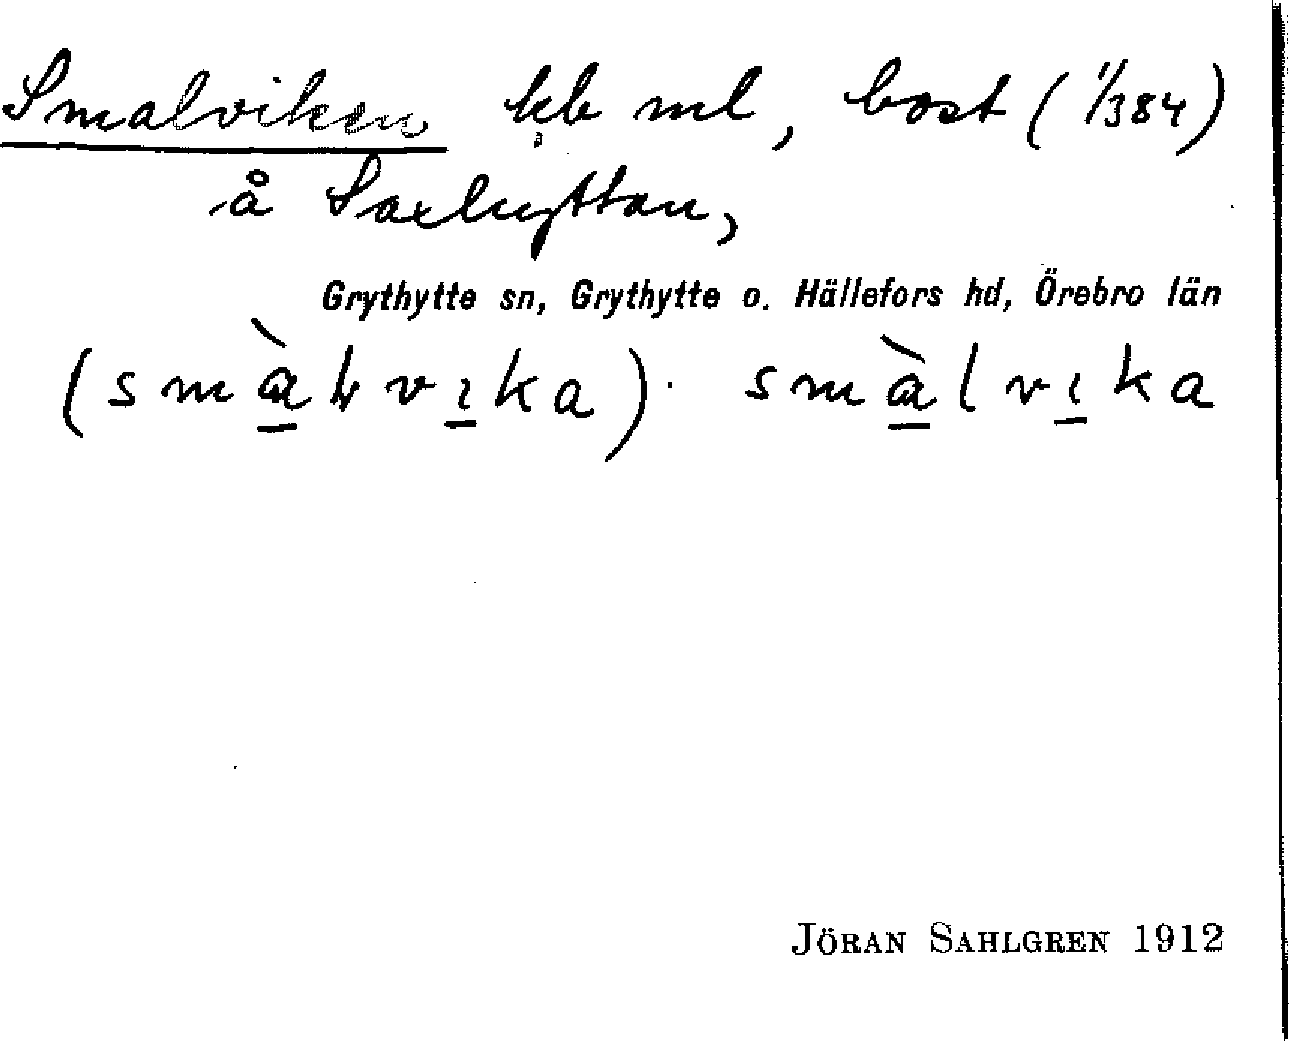 Smalviken kb ml, bost (1/384)
å Saxhyttan,
Grythytte sn, Grythytte o. Hällefors hd, Örebro län
(smàlvıka). smàlvıka
JÖRAN SAHLGREN 1912